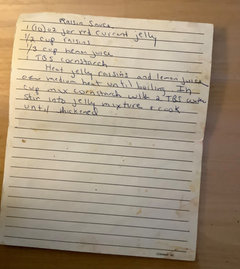 Raisin Sauce
1 (10) oz jar red currant jelly
1/2 cup raisins
1/3 cup lemon juice
1 TBS cornstarch
Heat jelly raisins and lemon juice
over medium heat until boiling. In
cup mix cornstarch with 2 TBS water
stir into jelly mixture & cook
until thickened